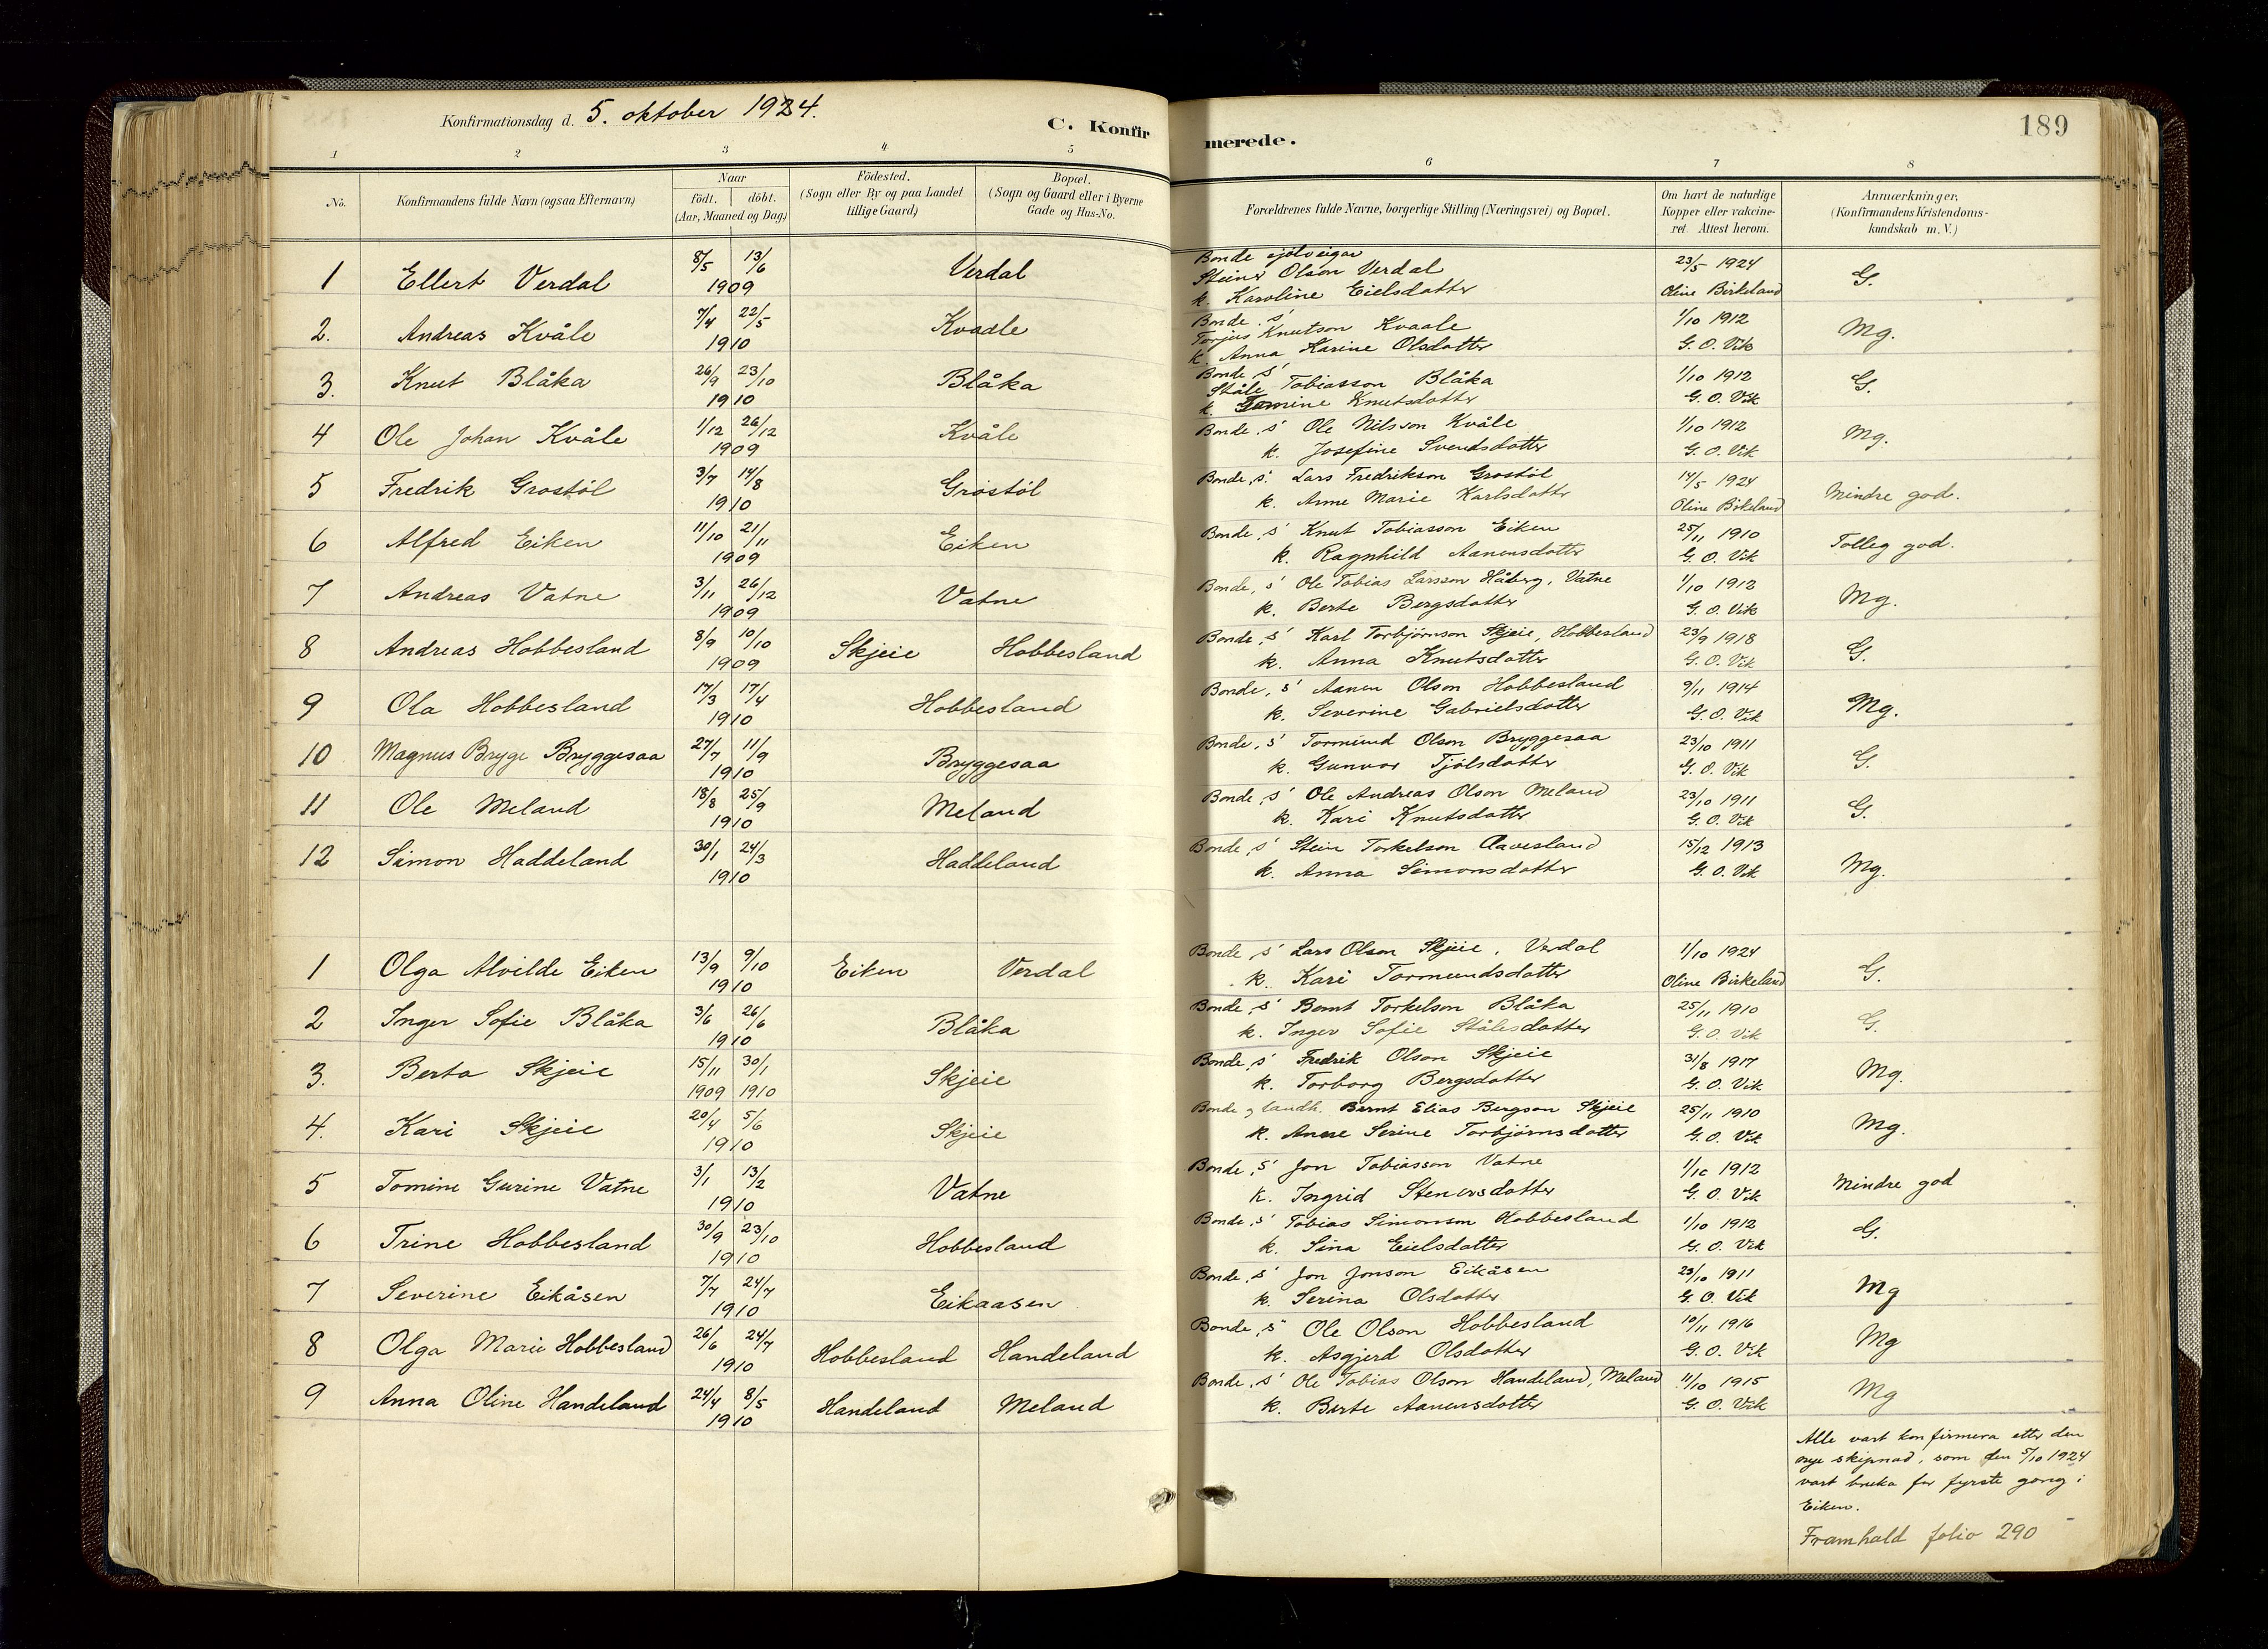 Konfirmationsdag d. 5. oktober 1924.
C. Konfirmerede.
189
1 2 3 4 5 6 7 8
No. Konfirmandens fulde Navn (ogsaa Efternavn) Naar födt. döbt. (Aar, Maaned og Dag) Födested. (Sogn eller By og paa Landet tillige Gaard) Bopæl. (Sogn og Gaard eller i Byerne Gade og Hus-No. Forældrenes fulde Navne, borgerlige Stilling (Næringsvei) og Bopæl. Om havt de naturlige Kopper eller vakcineret Attest herom. Anmærkninger. (Konfirmandens Kristendomskundskab m. V.)
Bonde sjølveigar
1 Ellert Verdal 8/5 13/6 Verdal Steinar Olson Verdal 23/5 1924 G.
1909 k. Karoline Eielsdatter Oline Birkeland
Bonde. s'
2. Andreas Kvåle 7/4 22/5 Kvaale Torjus Knutson Kvaale 1/10 1912 Mg.
1910 k. Anna Karine Olsdatter G. O. Vik
Bonde s'
3. Knut Blåka 26/9 23/10 Blåka Ståle Tobiasson Blåka 1/10 1912 G.
1910 k. Tomine Knutsdatter G. O. Vik
4 Ole Johan Kvåle 1/12 26/12 Kvåle Bonde, s' Ole Nilsson Kvåle 1/10 1912 Mg.
1909 k. Josefine Svendsdatter G. O. Vik
5 Fredrik Grostöl 3/7 14/8 Grostöl Bonde, s' Lars Fredrikson Grostöl 14/5 1924 Mindre god.
1910 k. Anne Marie Karlsdatter Oline Birkeland
6 Alfred Eiken 11/10 21/11 Eiken Bonde, s' Knut Tobiasson Eiken 25/11 1910 Tolleg god.
1909 k. Ragnhild Aanensdatter G. O. Vik
7 Andreas Vatne 3/11 26/12 Vatne Bonde, s' Ole Tobias Larsson Håberg, Vatne 1/10 1912 Mg.
1909 k. Berte Bergsdatter G. O. Vik
8 Andreas Hobbesland 8/9 10/10 Skjeie Hobbesland Bonde, s' Karl Torbjørnson Skjeie, Hobbesland 23/9 1918 G.
1909 k. Anna Knutsdatter G. O. Vik
9 Ola Hobbesland 17/3 17/4 Hobbesland Bonde, s' Aanen Olson Hobbesland 9/11 1914 Mg.
1910 k. Severine Gabrielsdatter G. O. Vik
10 Magnus Bryge Bryggesaa 27/7 11/9 Bryggesaa Bonde, s' Tormund Olson Bryggesaa 23/10 1911 G.
1910 k. Gunvor Tjølsdatter G. O. Vik
11 Ole Meland 18/8 25/9 Meland Bonde, s' Ole Andreas Olson Meland 23/10 1911 G.
1910 k. Kari Knutsdatter G. O. Vik
12 Simon Haddeland 30/1 24/3 Haddeland Bonde, s' Stein Torkelson Aavesland 15/12 1913 Mg.
1910 k. Anna Simonsdatter G. O. Vik
1 Olga Alvilde Eiken 13/9 9/10 Eiken Verdal Bonde, s' Lars Olson Skjeie, Verdal 1/10 1924 G.
1910 k. Kari Tormundsdatter Oline Birkeland
2 Inger Sofie Blåka 3/6 26/6 Blåka Bonde, s' Bernt Torkelson Blåka 25/11 1910 G.
1910 k. Inger Sofie Stålesdatter G. O. Vik
3. Berta Skjeie 15/11 30/1 Skjeie Bonde, s' Fredrik Olson Skjeie 31/8 1917 Mg.
1909 1910 k. Torborg Bergsdatter G. O. Vik
4. Kari Skjeie 20/4 5/6 Skjeie Bonde og landh. Bernt Elias Bergson Skjeie 25/11 1910 Mg.
1910 k. Anne Serine Torbjørnsdatter G. O. Vik
5 Tomine Gurine Vatne 3/1 13/2 Vatne Bonde, s' Jon Tobiasson Vatne 1/10 1912 Mindre god
1910 k. Ingrid Stenersdatter G. O. Vik
6 Trine Hobbesland 30/9 23/10 Hobbesland Bonde, s' Tobias Simonson Hobbesland 1/10 1912 G.
1910 k. Sina Eielsdatter G. O. Vik
7 Severine Eikåsen 7/7 24/7 Eikaasen Bonde, s' Jon Jonson Eikåsen 23/10 1911 Mg
1910 k. Serina Olsdatter G. O. Vik
8 Olga Marie Hobbesland 26/6 24/7 Hobbesland Handeland Bonde, s' Ole Olson Hobbesland 10/11 1916 Mg
1910 k. Asgjerd Olsdatter G. O. Vik
9 Anna Oline Handeland 24/4 8/5 Handeland Meland Bonde, s' Ole Tobias Olson Handeland, Meland 11/10 1915 Mg
1910 k. Berte Aanensdatter G. O. Vik
Alle vart konfirmera etter den
nye skipnad, som den 5/10 1924
vart bruka for fyrste gong i
Eiken.
Framhald folio 290